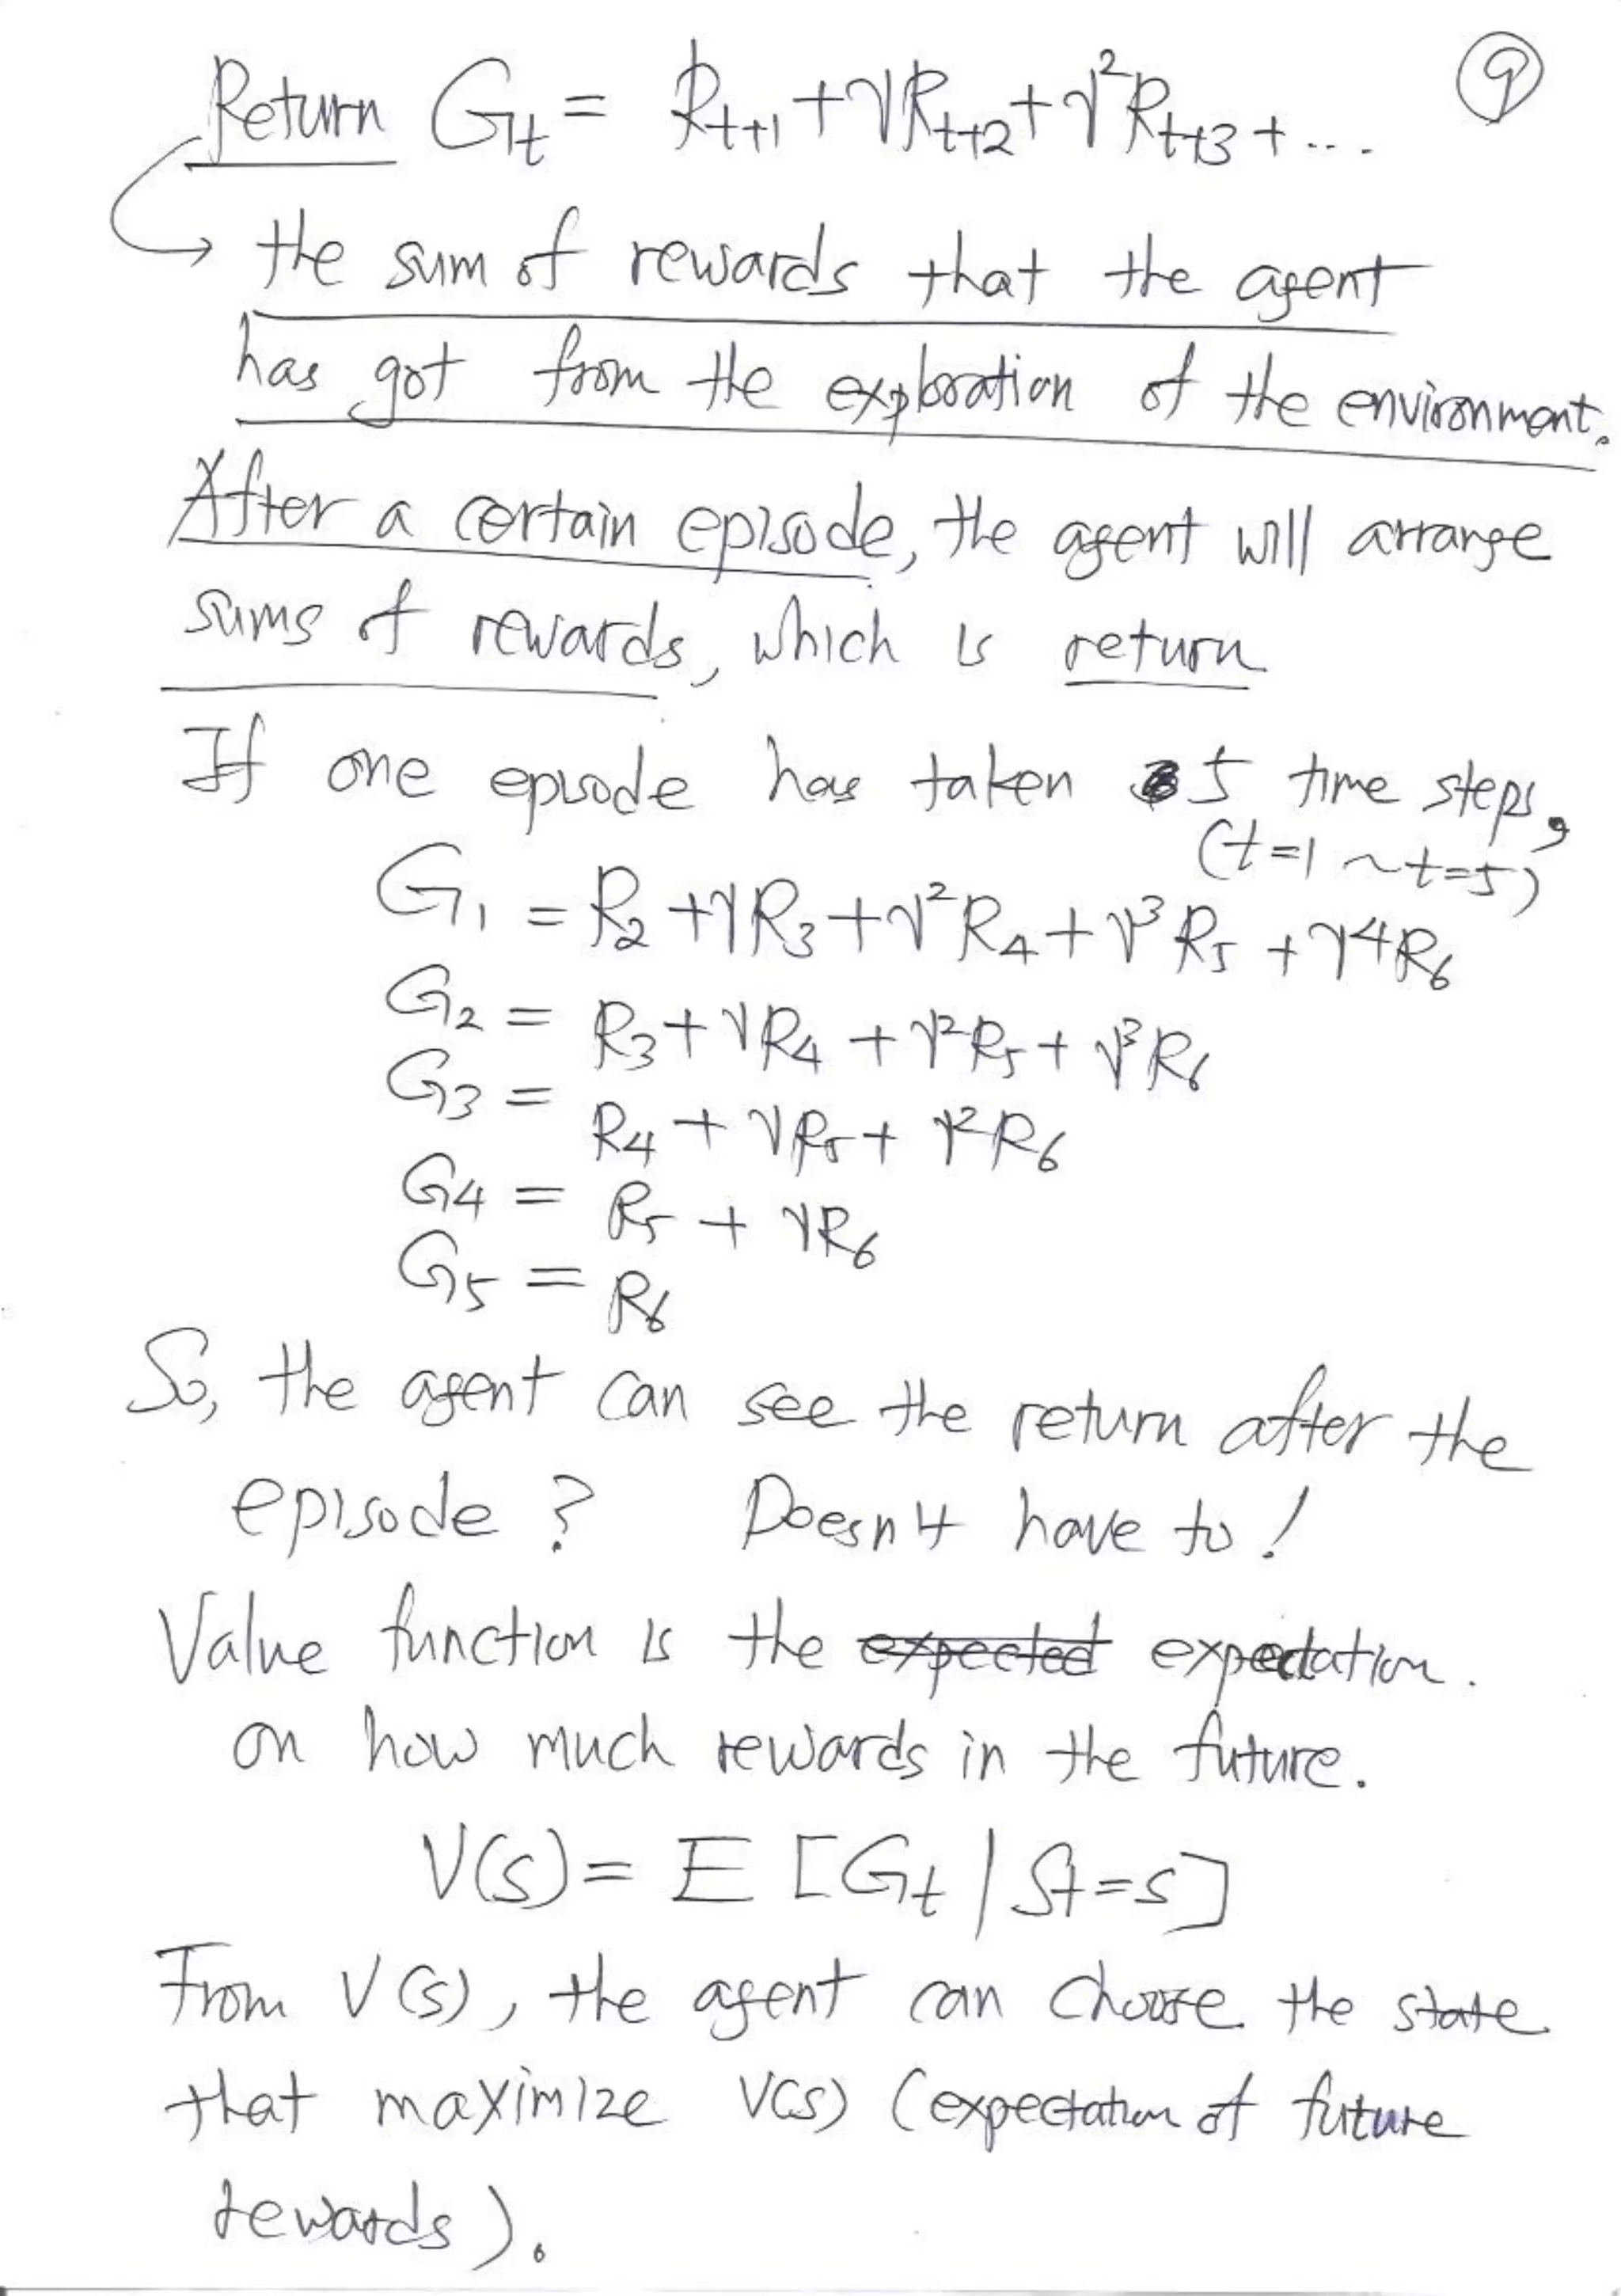 Return Gt = Rt+1 + γRt+2 + γ²Rt+3 + ... 9
→ the sum of rewards that the agent
has got from the exploration of the environment.
After a certain episode, the agent will arrange
sums of rewards, which is return
If one episode has taken 5 time steps,
(t=1 ~ t=5)
G1 = R2 + γR3 + γ²R4 + γ³R5 + γ4R6
G2 = R3 + γR4 + γ²R5 + γ³R6
G3 = R4 + γR5 + γ²R6
G4 = R5 + γR6
G5 = R6
So, the agent can see the return after the
episode? Doesn't have to!
Value function is the expected expectation.
on how much rewards in the future.
V(s) = E [Gt | St=s]
From V(s), the agent can choose the state
that maximize V(s) (expectation of future
rewards).